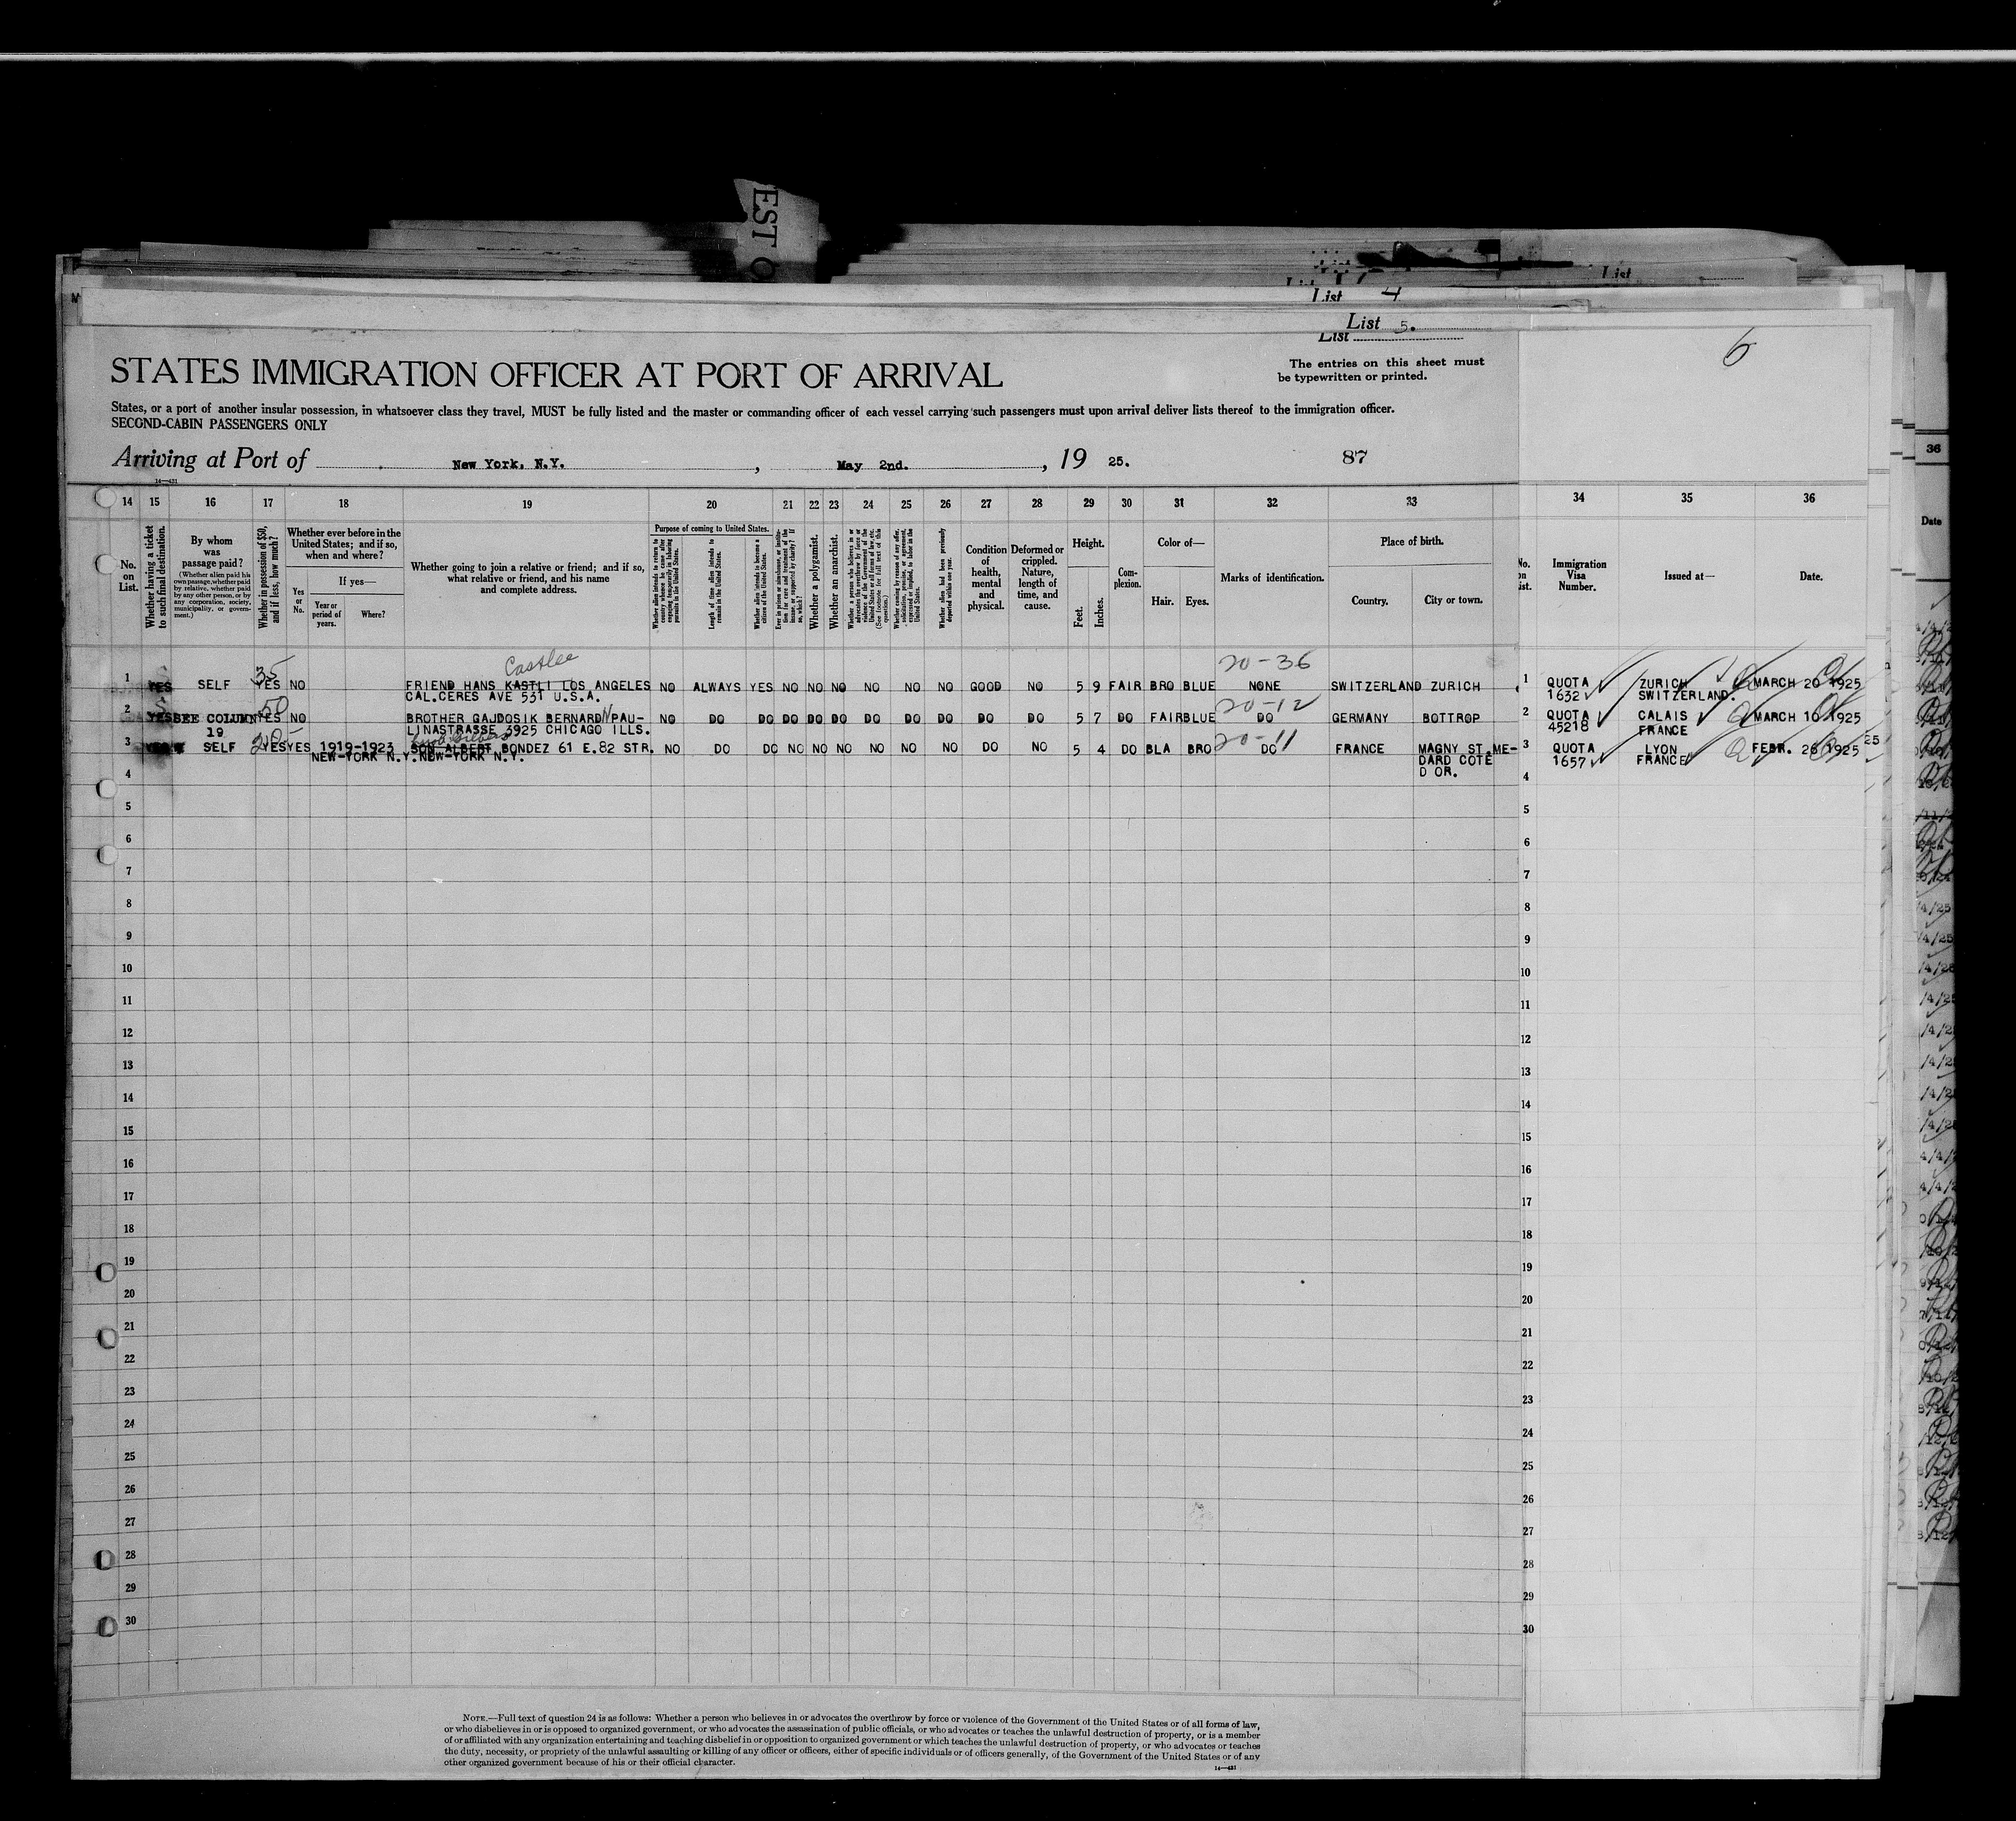 EST O
List
List 4
List 5.
List
6
STATES IMMIGRATION OFFICER AT PORT OF ARRIVAL
The entries on this sheet must
be typewritten or printed.
States, or a port of another insular possession, in whatsoever class they travel, MUST be fully listed and the master or commanding officer of each vessel carrying such passengers must upon arrival deliver lists thereof to the immigration officer.
SECOND-CABIN PASSENGERS ONLY
Arriving at Port of New York, N.Y. , May 2nd. , 19 25. 87
14—431
14 15 16 17 18 19 20 21 22 23 24 25 26 27 28 29 30 31 32 33 34 35 36
No. on List.
Whether having a ticket to such final destination.
By whom was passage paid?
(Whether alien paid his own passage, whether paid by relative, whether paid by any other person, or by any corporation, society, municipality, or government.)
Whether in possession of $50, and if less, how much?
Whether ever before in the United States; and if so, when and where?
Yes or No.
If yes—
Year or period of years.
Where?
Whether going to join a relative or friend; and if so, what relative or friend, and his name and complete address.
Purpose of coming to United States.
Whether alien intends to return to country whence he came after engaging temporarily in laboring pursuits in the United States.
Length of time alien intends to remain in the United States.
Whether alien intends to become a citizen of the United States.
Ever in prison or almshouse, or institution for care and treatment of the insane, or supported by charity? If so, which?
Whether a polygamist.
Whether an anarchist.
Whether a person who believes in or advocates the overthrow by force or violence of the Government of the United States or all forms of law, etc. (See footnote for full text of this question.)
Whether coming by reason of any offer, solicitation, promise, or agreement, expressed or implied, to labor in the United States.
Whether alien had been previously deported within one year.
Condition of health, mental and physical.
Deformed or crippled. Nature, length of time, and cause.
Height.
Feet.
Inches.
Complexion.
Color of—
Hair.
Eyes.
Marks of identification.
Place of birth.
Country.
City or town.
No. on List.
Immigration Visa Number.
Issued at—
Date.
36
Date
35 Castlee 20-36
1 YES SELF YES NO FRIEND HANS KASTLI LOS ANGELES NO ALWAYS YES NO NO NO NO NO NO GOOD NO 5 9 FAIR BRO BLUE NONE SWITZERLAND ZURICH 1 QUOTA ZURICH MARCH 20 1925
CAL.CERES AVE 531 U.S.A. 1632 SWITZERLAND.
50 20-12
2 YES SEE COLUMN YES NO BROTHER GAJDOSIK BERNARD PAU- NO DO DO DO DO DO DO DO DO DO DO 5 7 DO FAIR BLUE DO GERMANY BOTTROP 2 QUOTA CALAIS MARCH 10 1925
19 LINASTRASSE 3925 CHICAGO ILLS. 45218 FRANCE
20-11
3 SELF YES YES 1919-1923 SON ALBERT BONDEZ 61 E.82 STR. NO DO DO NO NO NO NO NO NO DO NO 5 4 DO BLA BRO DO FRANCE MAGNY ST.ME- 3 QUOTA LYON FEBR. 26 1925
NEW-YORK N.Y. NEW-YORK N.Y. DARD COTE 1657 FRANCE
D OR.
4 4
5 5
6 6
7 7
8 8
9 9
10 10
11 11
12 12
13 13
14 14
15 15
16 16
17 17
18 18
19 19
20 20
21 21
22 22
23 23
24 24
25 25
26 26
27 27
28 28
29 29
30 30
NOTE.—Full text of question 24 is as follows: Whether a person who believes in or advocates the overthrow by force or violence of the Government of the United States or of all forms of law,
or who disbelieves in or is opposed to organized government, or who advocates the assassination of public officials, or who advocates or teaches the unlawful destruction of property, or is a member
of or affiliated with any organization entertaining and teaching disbelief in or opposition to organized government or which teaches the unlawful destruction of property, or who advocates or teaches
the duty, necessity, or propriety of the unlawful assaulting or killing of any officer or officers, either of specific individuals or of officers generally, of the Government of the United States or of any
other organized government because of his or their official character.
14—431